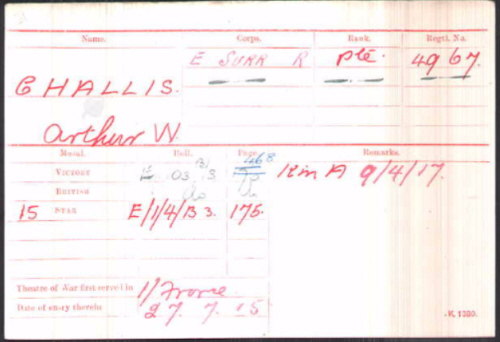 Name. Corps. Rank. Regtl. No.
E SURR R Pte. 4967.
CHALLIS.
Arthur W.
Medal. Roll. Page. Remarks.
VICTORY 468 K in A 9/4/17.
BRITISH do
15 STAR E/1/4/B3. 175.
Theatre of War first served in 1/ France.
Date of entry therein 27. 7. 15